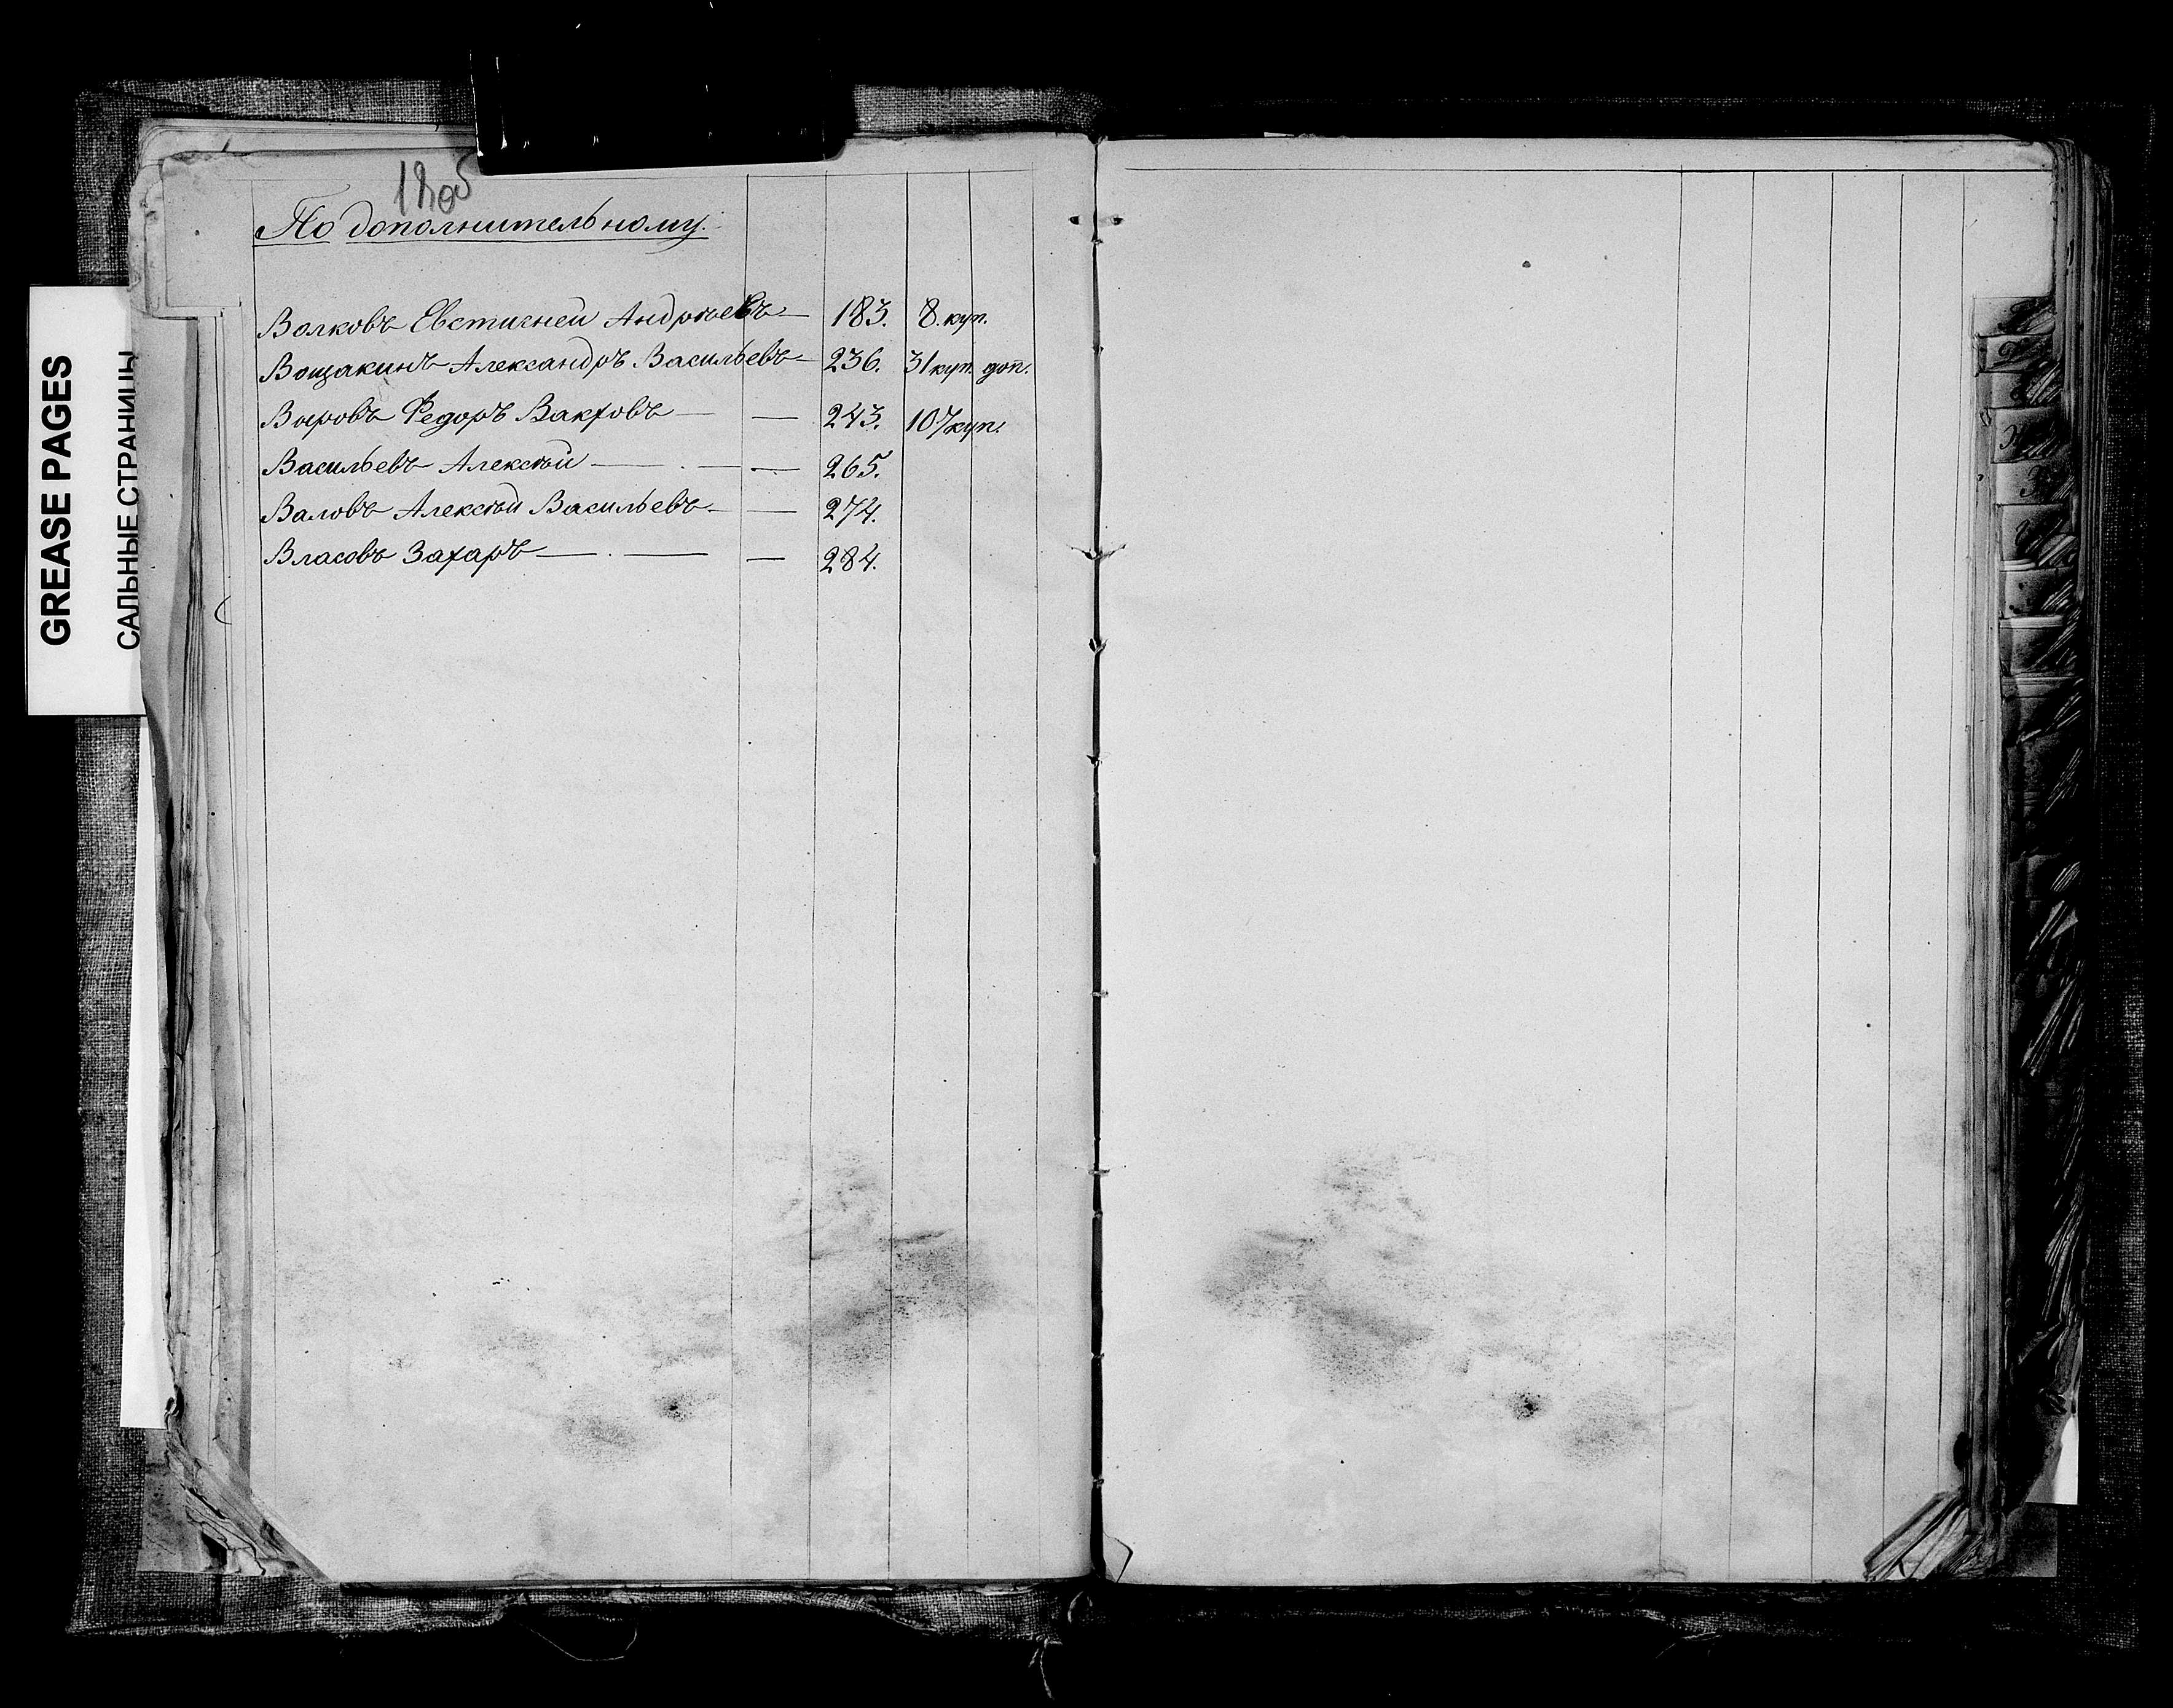 GREASE PAGES
САЛЬНЫЕ СТРАНИЦЫ
По дополнительному.
Волковъ Евстигней Андреевъ — 183. 8. куп.
Вощакинъ Александръ Васильевъ — 236. 31 куп. доп.
Выровъ Федоръ Вакховъ — — 243. 107 куп.
Васильевъ Алексѣй — . — . — 265.
Валовъ Алексѣй Васильевъ — — 274.
Власовъ Захаръ — . — — 284.